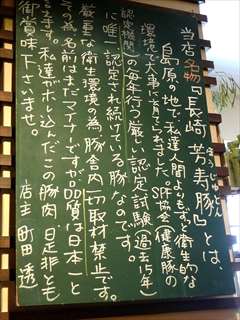 当店名物『長崎芳寿豚』とは、
島原の地で、私達人間よりもずっと衛生的な
環境で大事に育てられましたSPF協会(健康豚の
認定機関)の毎年行う厳しい認定試験(過去15年)
に唯一認定され続けている豚なのです。
厳重な衛生環境の為、豚舎内一切取材禁止です。
その為名前はまだマイナーですが品質は日本一と
言えます。私達がホレ込んだこの豚肉是非とも
御賞味下さいませ。
店主 町田 透